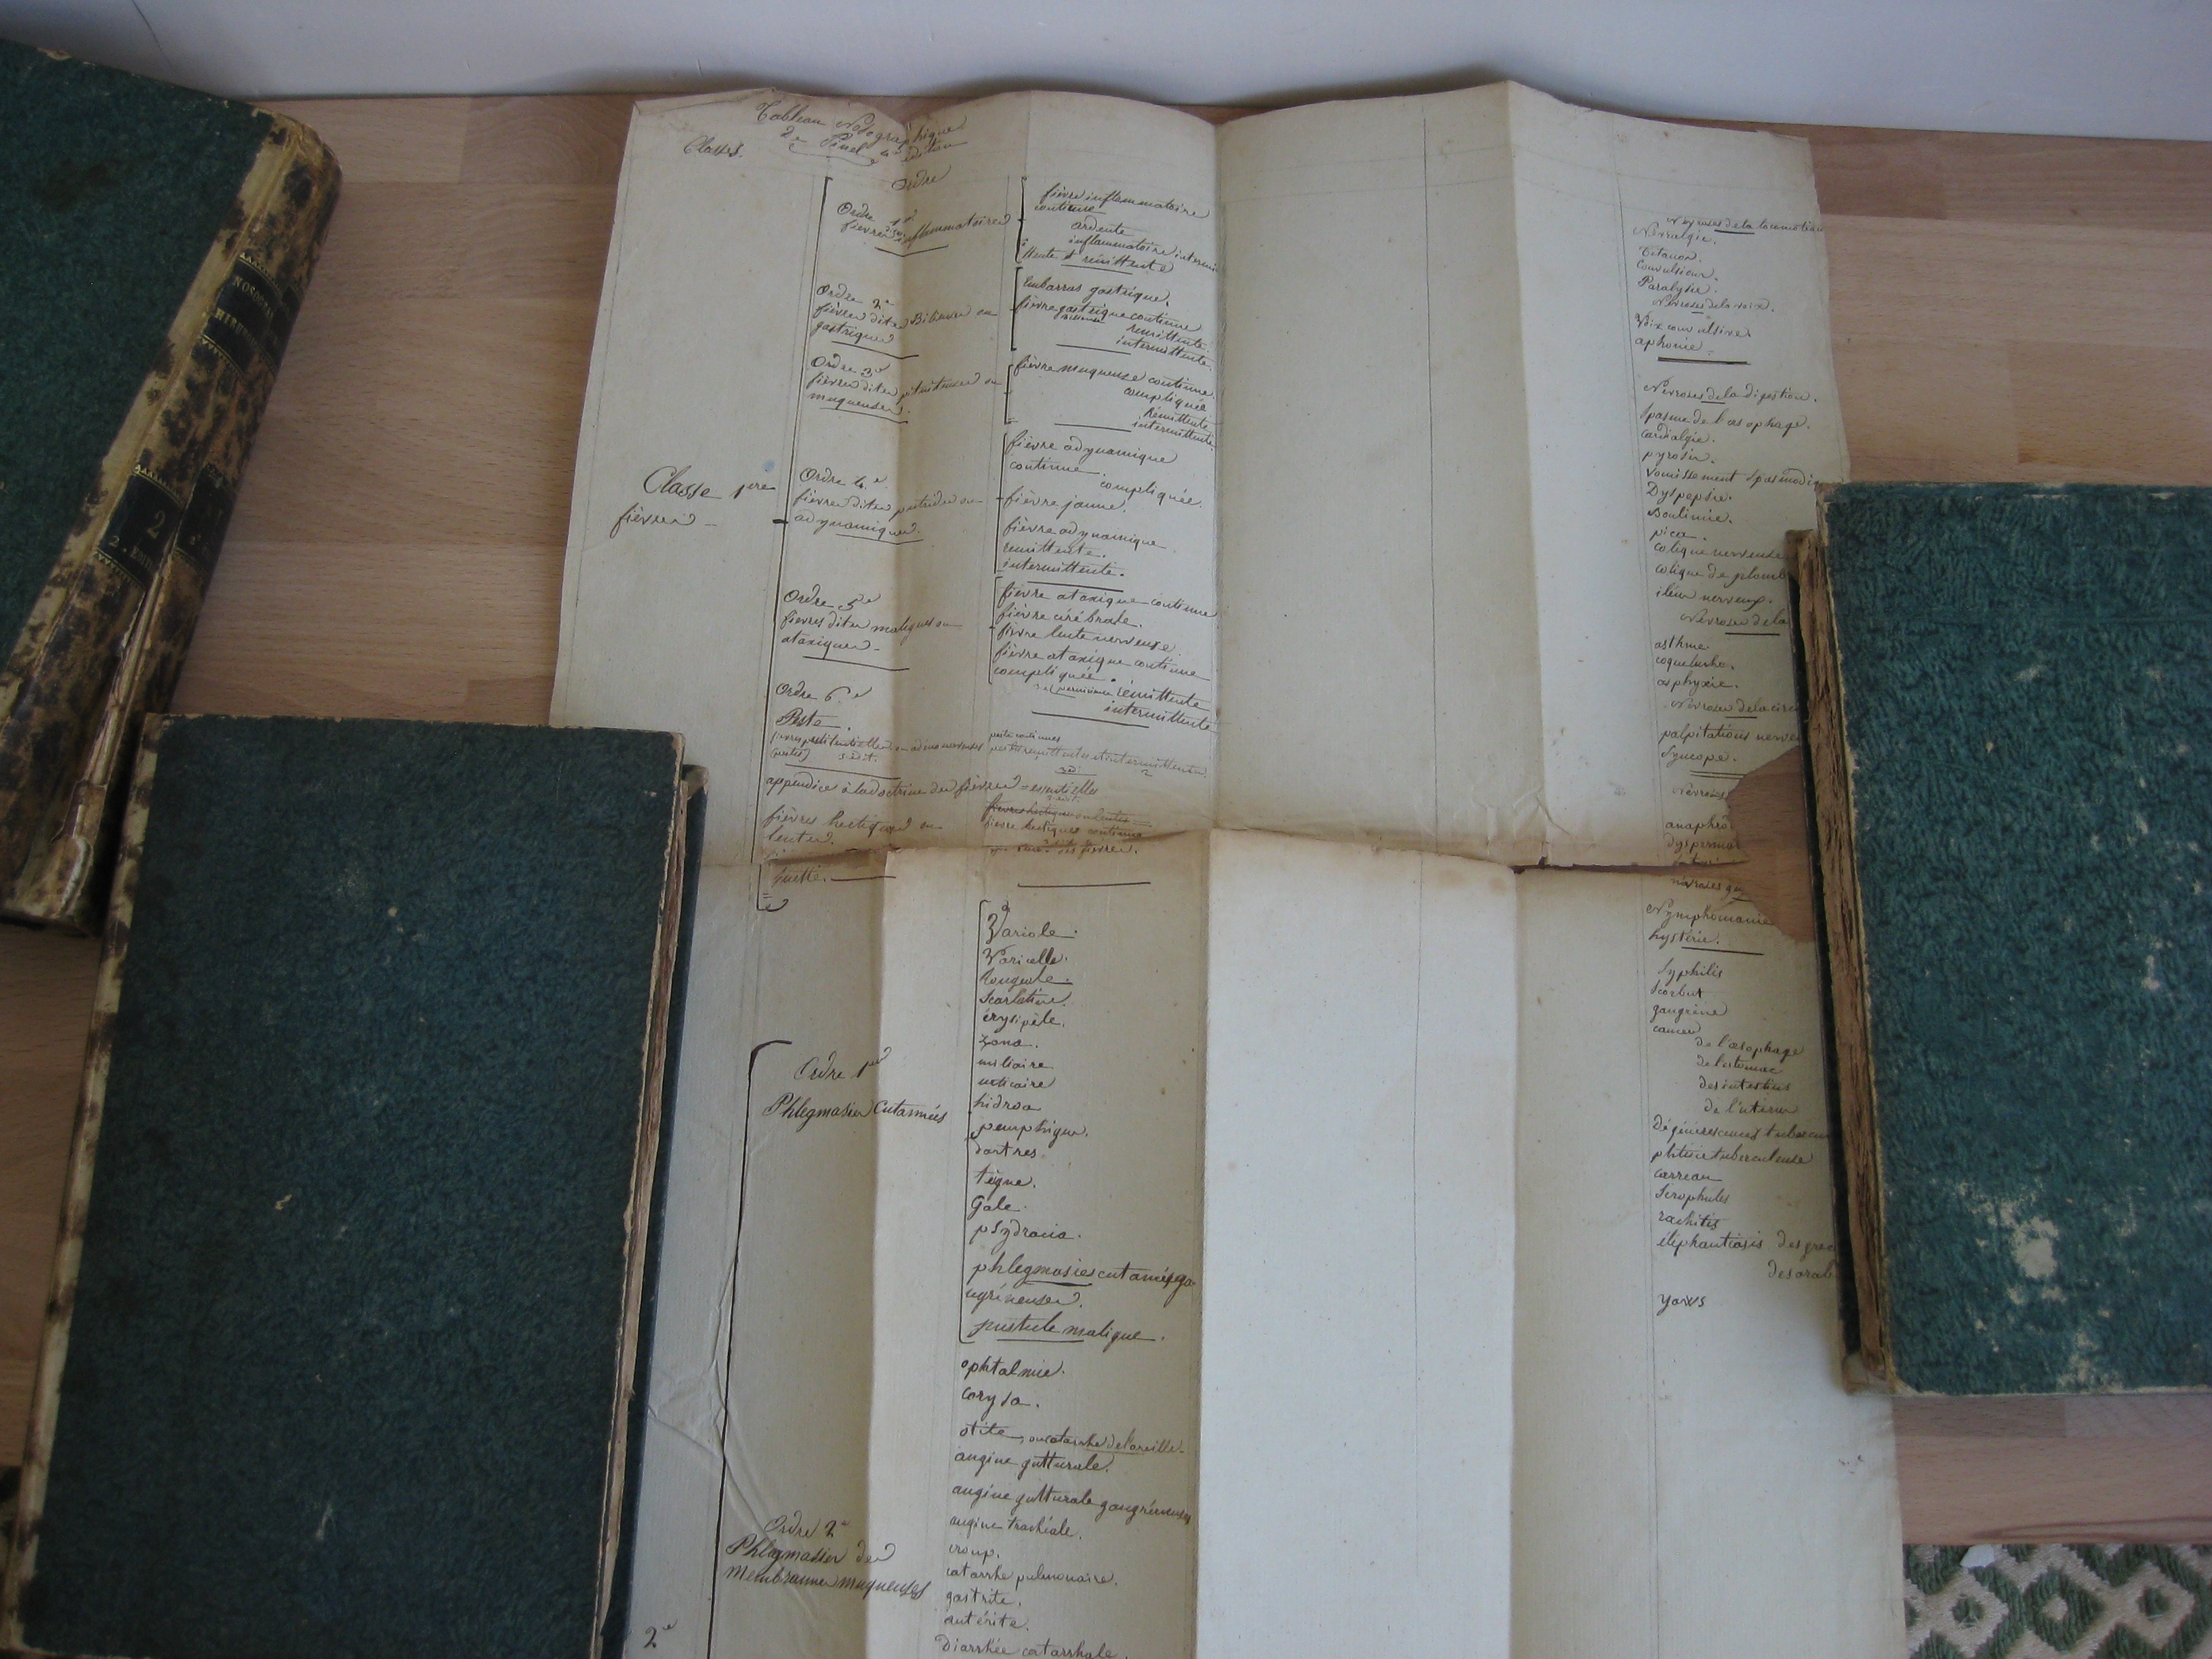 NOSOGRA
CHIRUR
2
2. EDIT
Tableau Nosographique
De Pinel 4e édition
Classes.
Ordre
Classe 1ere
fièvres
Ordre 1er
fièvres dites inflammatoires
fièvre inflammatoire
continue
ardente
inflammatoire intermi
ttente & rémittente
Ordre 2e
fièvres dites Bilieuses ou
gastriques
Embarras gastrique.
fièvre gastrique continue
bilieuse
remittente.
intermittente.
Ordre 3e
fièvres dites pituiteuses ou
muqueuses.
fièvre muqueuse continue.
compliquée
Rémittente
intermittente.
Ordre 4e
fièvres dites putrides ou
adynamiques.
fièvre adynamique
continue
compliquée.
fièvre jaune.
fièvre adynamique
remittente.
intermittente.
Ordre 5e
fièvres dites maliques ou
ataxiques
fièvre ataxique continue
fièvre cérébrale.
fièvre lente nerveuse.
fièvre ataxique continue
compliquée.
rémittente
intermittente
Ordre 6e
Peste.
fièvres pestilentielles ou adeno nerveuses
(pestes) 3 edit.
peste continues
pestes remittentes et intermittentes
3 edi
appendice à la doctrine des fièvres essentielles
fièvres hectiques ou
lentes.
fièvres hectiques ou lentes
fièvre hectique continue
des fièvres.
Suette.
Ordre 1er
Phlegmasies Cutannées
Variole.
Varicelle.
Rougeole.
Scarlatine.
érysipèle.
Zona.
miliaire
urticaire
hidroa
pemphigus.
dartres
teigne.
Gale.
psydracia.
phlegmasies cutanées ga
ngréneuses.
pustule malique.
Ordre 2e
Phlegmasies des
membrannes muqueuses
2e
ophtalmie.
coryza.
otite, ou catarrhe de l'oreille.
angine gutturale.
angine gutturale gangréneuse
angine trachéale.
croup.
catarrhe pulmonaire.
gastrite.
entérite.
Diarrhée catarrhale.
Névroses de la locomotion
Névralgie.
Tétanos.
Convulsions.
Paralysie.
Névroses de la voix.
Voix convulsive
aphonie.
Névroses de la digestion.
Spasme de l'œsophage.
cardialgie.
pyrosis.
vomissement spasmodi
Dyspepsie.
Boulimie.
pica.
colique nerveuse
colique de plomb
iléus nerveux.
Névroses de la
asthme
coqueluche.
asphyxie.
Névroses de la circ
palpitations nerve
Syncope.
Névroses
anaphro
dyspermat
névroses g
Nymphomanie
hystérie.
Syphilis
Scorbut
gangrène
cancer
de l'œsophage
de l'estomac
des intestins
de l'uterus
Dégénérescences tubercu
phtisie tuberculeuse
carreau
Scrophules
rachitis
éléphantiasis des grec
des arab
yaws